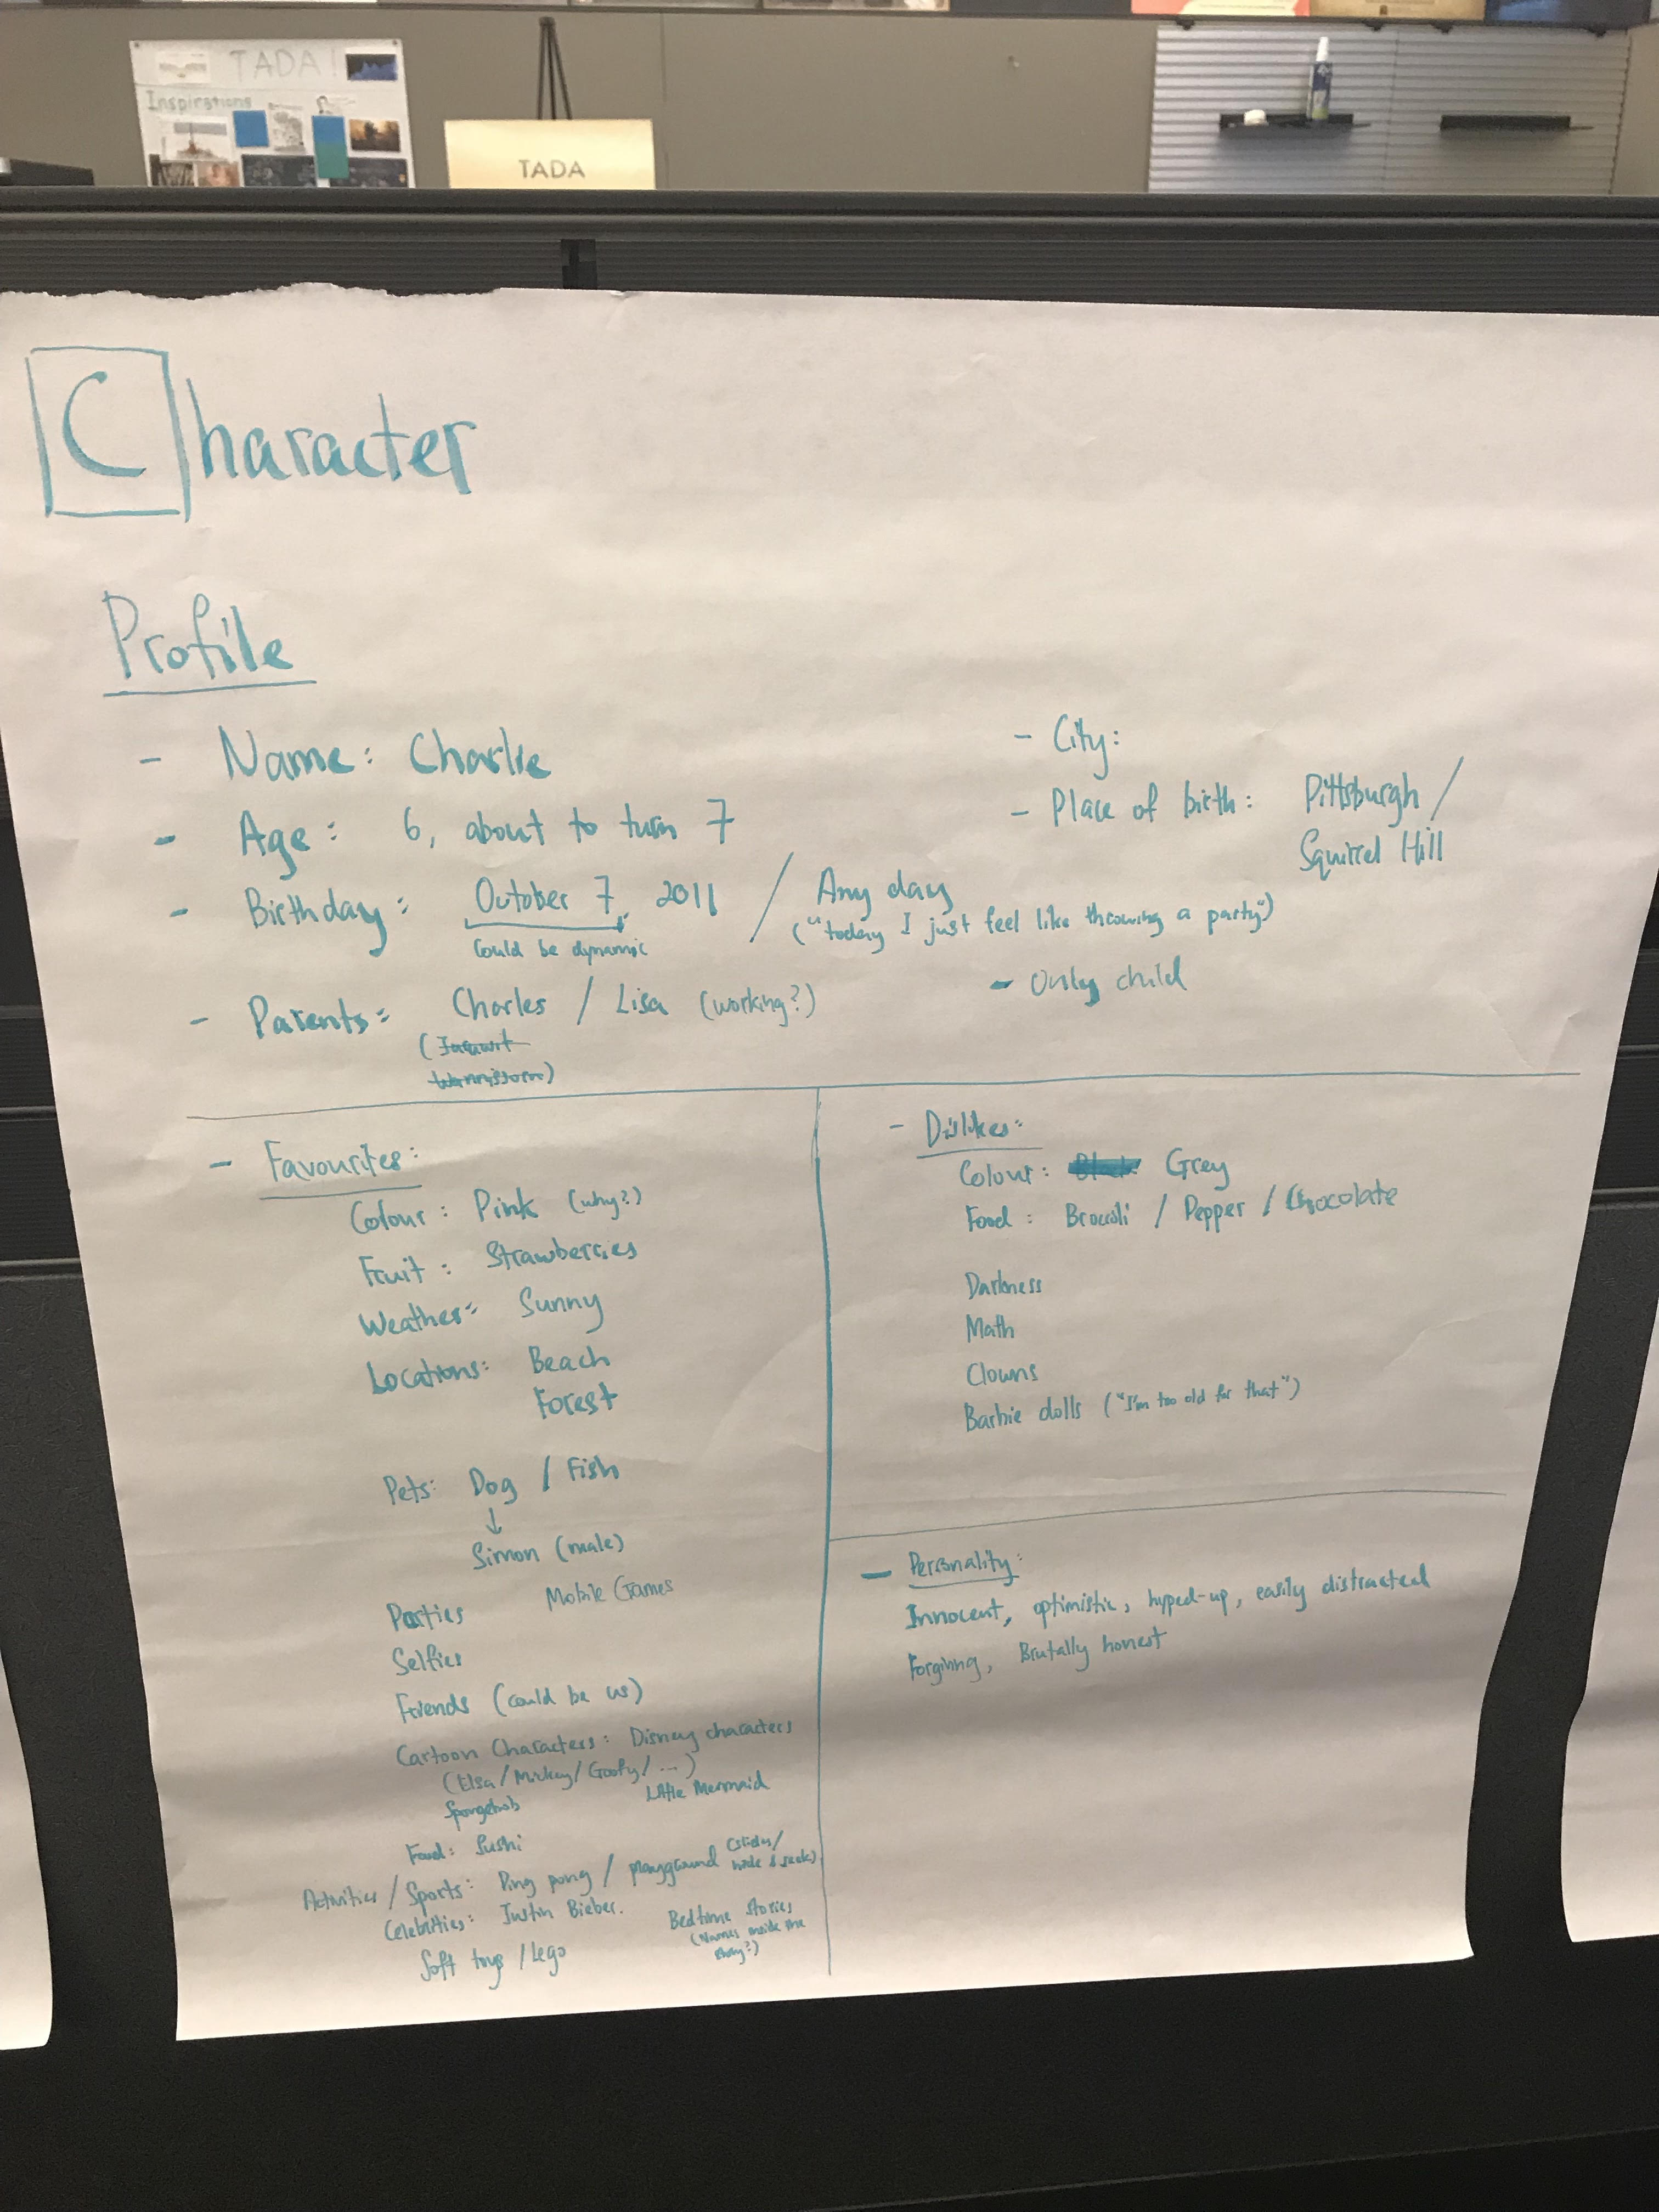 TADA!
Inspirations
TADA
Character
Profile
- Name: Charlie
- Age: 6, about to turn 7
- Birthday: October 7, 2011 / Any day
could be dynamic
("today I just feel like throwing a party")
- Parents: Charles / Lisa (working?)
- City:
- Place of birth: Pittsburgh /
Squirrel Hill
- Only child
- Favourites:
Colour: Pink (why?)
Fruit: Strawberries
Weather: Sunny
Locations: Beach
Forest
Pets: Dog / Fish
↓
Simon (male)
Parties
Mobile Games
Selfies
Friends (could be us)
Cartoon Characters: Disney characters
(Elsa / Mickey / Goofy / ...)
Spongebob
Little Mermaid
Food: Sushi
Activities / Sports: Ping pong / playground (slides /
hide & seek)
Celebrities: Justin Bieber.
Soft toys / Lego
Bedtime stories
(Names inside the
story?)
- Dislikes:
Colour: Black Grey
Food: Broccoli / Pepper / Chocolate
Darkness
Math
Clowns
Barbie dolls ("I'm too old for that")
- Personality:
Innocent, optimistic, hyped-up, easily distracted
Forgiving, Brutally honest